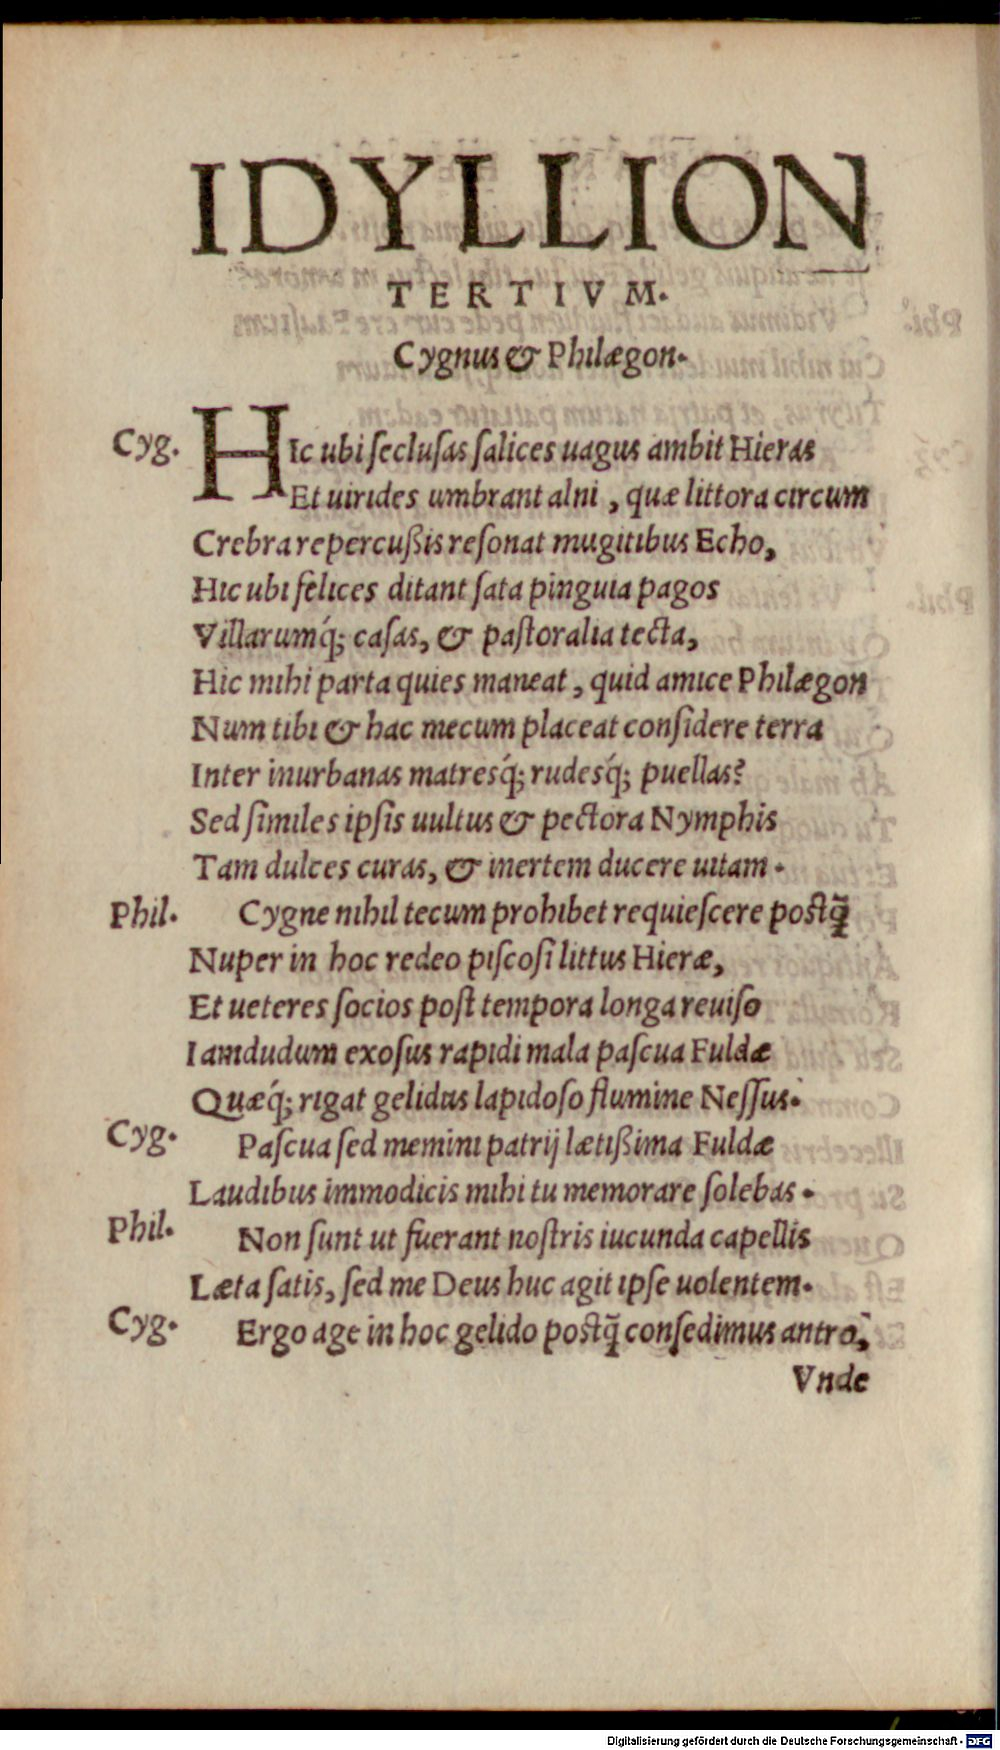 IDYLLION
TERTIVM.
Cygnus & Philægon.
Cyg. HIc ubi ſecluſas ſalices uagus ambit Hieras
Et uirides umbrant alni, quæ littora circum
Crebra repercußis reſonat mugitibus Echo,
Hic ubi felices ditant ſata pinguia pagos
Villarumq́; caſas, & paſtoralia tecta,
Hic mihi parta quies maneat, quid amice Philægon
Num tibi & hac mecum placeat conſidere terra
Inter inurbanas matresq́; rudesq́; puellas?
Sed ſimiles ipſis uultus & pectora Nymphis
Tam dulces curas, & inertem ducere uitam.
Phil. Cygne nihil tecum prohibet requieſcere poſtq̃
Nuper in hoc redeo piſcoſi littus Hieræ,
Et ueteres ſocios poſt tempora longa reuiſo
Iamdudum exoſus rapidi mala paſcua Fuldæ
Quæq́; rigat gelidus lapidoſo flumine Neſſus.
Cyg. Paſcua ſed memini patrij lætißima Fuldæ
Laudibus immodicis mihi tu memorare ſolebas.
Phil. Non ſunt ut fuerant noſtris iucunda capellis
Læta ſatis, ſed me Deus huc agit ipſe uolentem.
Cyg. Ergo age in hoc gelido poſtq̃ conſedimus antro,
Vnde
Digitalisierung gefördert durch die Deutsche Forschungsgemeinschaft - DFG